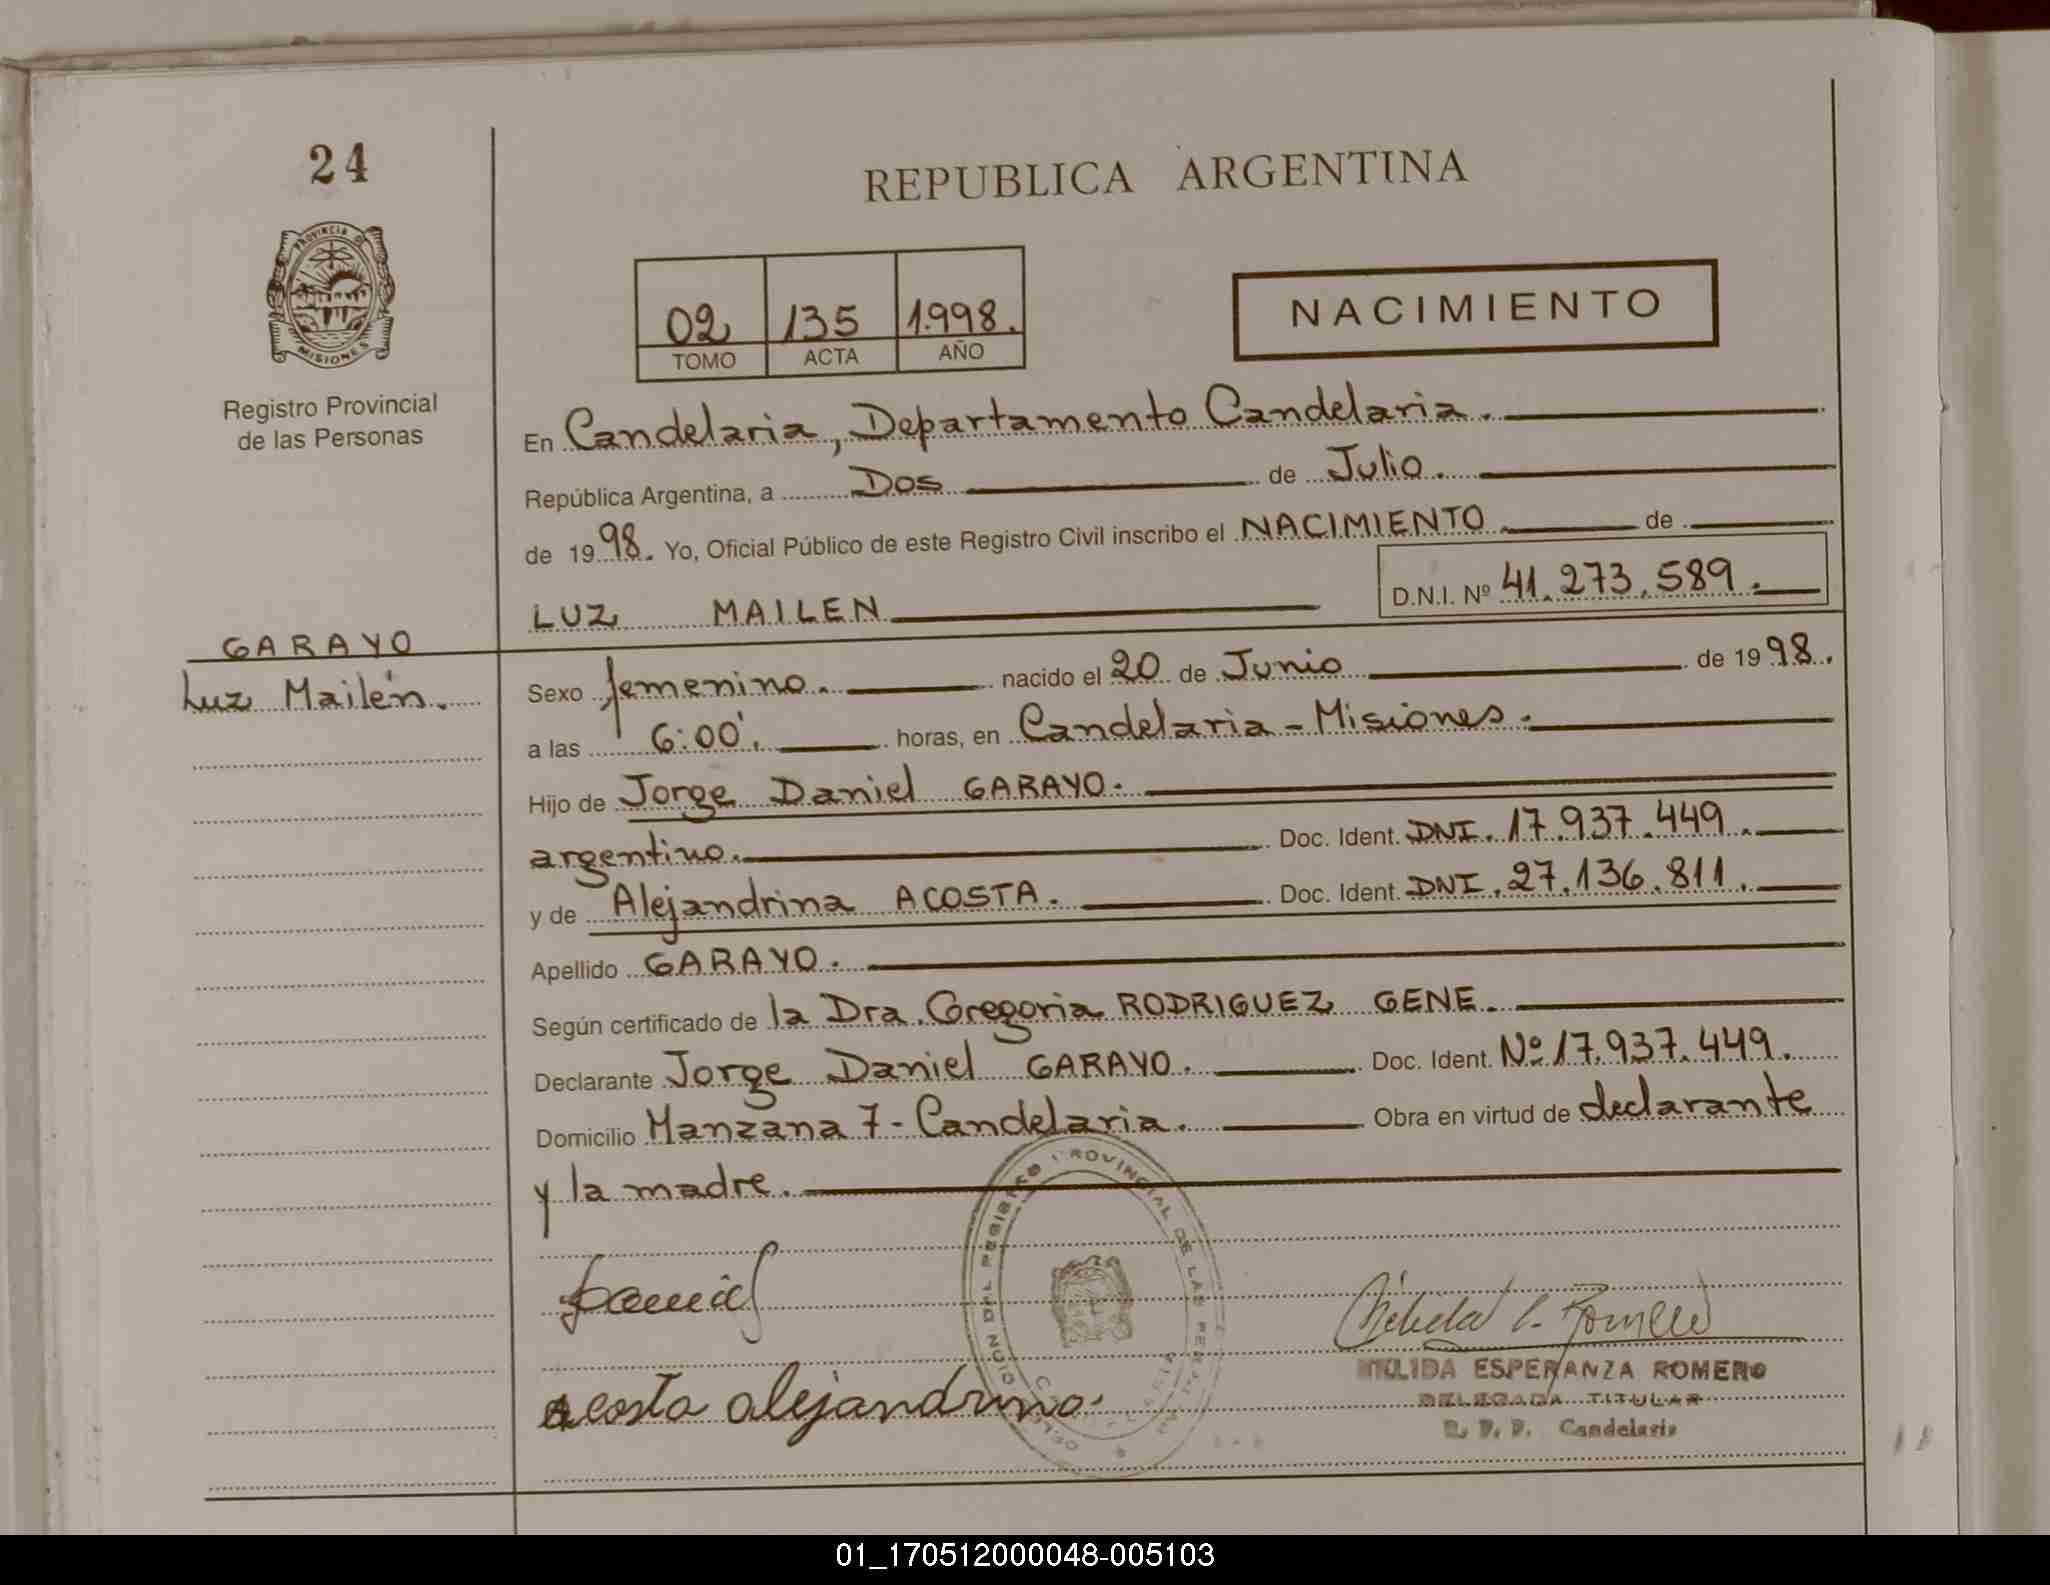 24
REPUBLICA ARGENTINA
PROVINCIA DE MISIONES
Registro Provincial
de las Personas
02 135 1.998.
TOMO ACTA AÑO
NACIMIENTO
En Candelaria, Departamento Candelaria.
República Argentina, a Dos de Julio.
de 1998. Yo, Oficial Público de este Registro Civil inscribo el NACIMIENTO de
D.N.I. Nº 41.273.589.
LUZ MAILEN
GARAYO
Luz Mailén.
Sexo femenino. nacido el 20 de Junio de 1998.
a las 6:00'. horas, en Candelaria - Misiones.
Hijo de Jorge Daniel GARAYO.
argentino. Doc. Ident. DNI. 17.937.449.
y de Alejandrina ACOSTA. Doc. Ident. DNI. 27.136.811.
Apellido GARAYO.
Según certificado de la Dra. Gregoria RODRIGUEZ GENE.
Declarante Jorge Daniel GARAYO. Doc. Ident. Nº 17.937.449.
Domicilio Manzana 7 - Candelaria. Obra en virtud de declarante
y la madre.
REGISTRO PROVINCIAL DE LAS
acosta alejandrina
ESPERANZA ROMERO
DELEGADA TITULAR
R. P. P. Candelaria
01_170512000048-005103